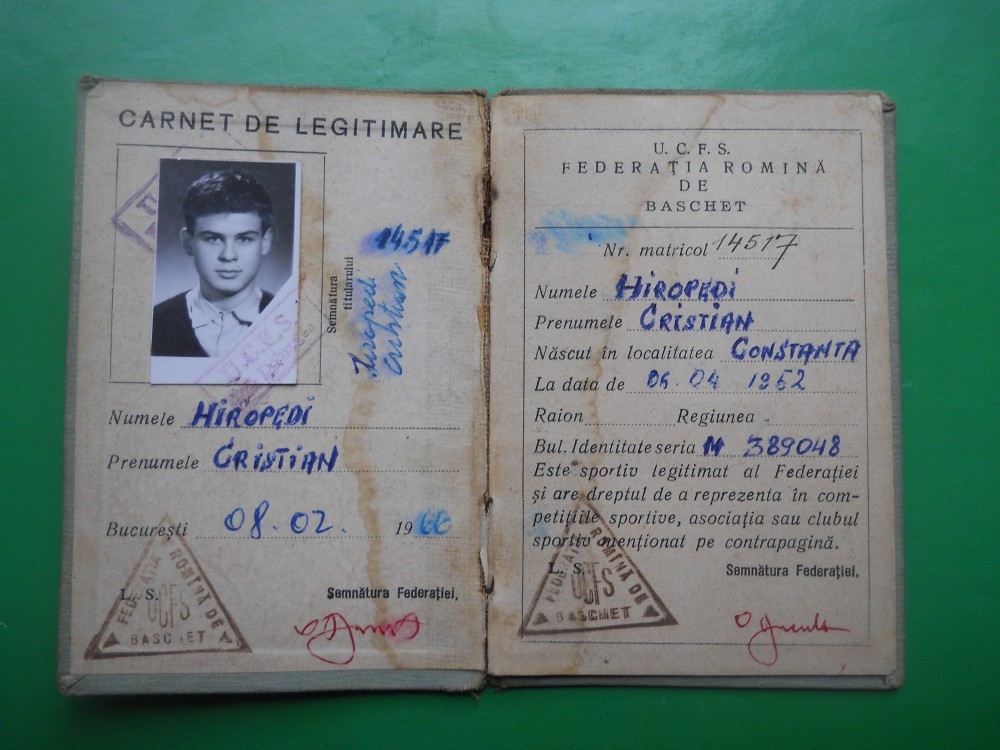 CARNET DE LEGITIMARE
U.C.F.S.
14517
Semnătura
titularului
Hiropedi
Cristian
Numele HIROPEDI
Prenumele CRISTIAN
București 08.02. 1966
L. S.
Semnătura Federației,
FEDERAȚIA ROMINĂ DE
UCFS
BASCHET
U. C. F. S.
FEDERAȚIA ROMINĂ
DE
BASCHET
Nr. matricol 14517
Numele HIROPEDI
Prenumele CRISTIAN
Născut în localitatea CONSTANTA
La data de 04 1952
Raion Regiunea
Bul. Identitate seria M 389048
Este sportiv legitimat al Federației
și are dreptul de a reprezenta în com-
petițiile sportive, asociația sau clubul
sportiv menționat pe contrapagină.
L. S.
Semnătura Federației,
FEDERAȚIA ROMINĂ DE
UCFS
BASCHET